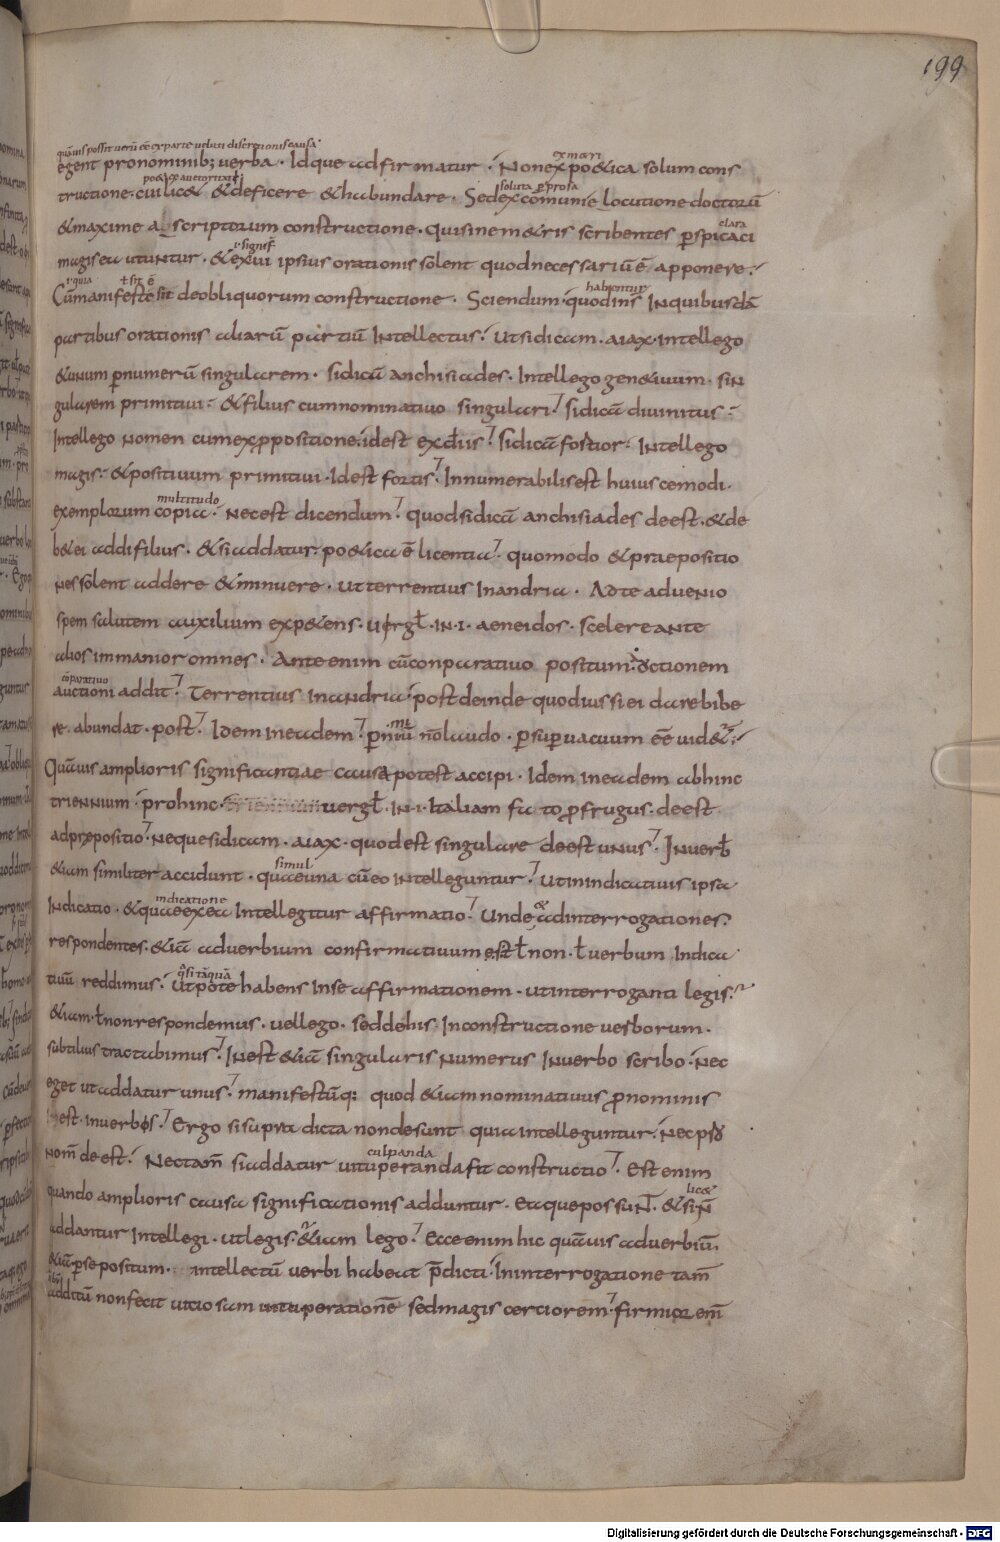 199
quāuis possit uerū ēē ex parte ueluti discretionis causa·
egent pronominib; uerba· Idque adfirmatur· Non ex poetica solum cons
tructione· cui licet & deficere & habundare· Sed ex comunie locutione doctorū
& maxime a scriptorum constructione· qui sine metris scribentes perspicaci
magis ea utuntur· & ex ui ipsius orationis solent quod necessariū ē apponere·
Cū manifeste sit de obliquorum constructione· Sciendum· quod inś In quibusdā
partibus orationis aliarū partiū Intellectus· ut si dicam· aiax· intellego
& unum per numerū singularem· si dicā anchisiades· Intellego genetiuum· sin
gularem primitiui· & filius cum nominatiuo singulari· si dicā diuinitus·
Intellego nomen cum ex prepositione· idest ex diis· si dicā fortior· Intellego
magis· & positiuum primitiui· Idest fortis· Innumerabilis est huiuscemodi·
multitudo
exemplorum copia· Nec est dicendum· quod si dicā anchisiades deest· & de
bet ei addi filius· & si addatur· poetica ē licentia· quomodo & praepositio
nes solent addere & minuere· ut terrentius In andria· Ad te aduenio
spem salutem auxilium expetens· uirgł· IN· I· aeneidos· scelere ante
alios immanior omnes· Ante enim cū conparatiuo positum
conparatiuo
auctioni addit· Terrentius In andria· post deinde quod iussi ei dare bibe
re· abundat· post· Idem in eadem· per nimiū n̄ laudo· per superuacuum ēē uidetur·
Quāuis amplioris significantiae causa potest accipi· Idem in eadem abhinc
triennium· pro hinc· uergł· IN· I· Italiam fato profugus· deest
ad prepositio· Neque si dicam· aiax· quod est singulare deest unus· In uerb
simul
etiam similiter accidunt· quae una cū eo intelleguntur· ut in indicatiuis ipsa
indicatione
Indicatio· & quae ex ea Intellegitur affirmatio· Unde & ad interrogationes·
respondentes· etiā aduerbium confirmatiuum est ł non· ł uerbum Indica
q̄si tāquā
tiuū reddimus· ut pote habens In se affirmationem· ut interroganti legis·
etiam· ł non respondemus· uel lego· sed de his In constructione uerborum·
subtilius tractabimus· Inest etiā singularis numerus In uerbo scribo· Nec
eget ut addatur unus· manifestūq; quod etiam nominatiuus pronominis
Inest· In uerbis· Ergo si supra dicta non desunt quia intelleguntur· Nec
culpanda
nom̄ deest· Nec tam̄ si addatur uituperanda fit constructio· Est enim
licet
quando amplioris causa significationis adduntur· Ea que possunt· & si n̄
addantur Intellegi· ut legis· etiam lego· Ecce enim hic quāuis aduerbiū
etiā per se positum· intellectū uerbi habeat p̄dicti· In interrogatione tam̄
additū non fecit uitiosam uituperationē sed magis certiorem· firmiorem̄
Digitalisierung gefördert durch die Deutsche Forschungsgemeinschaft - DFG